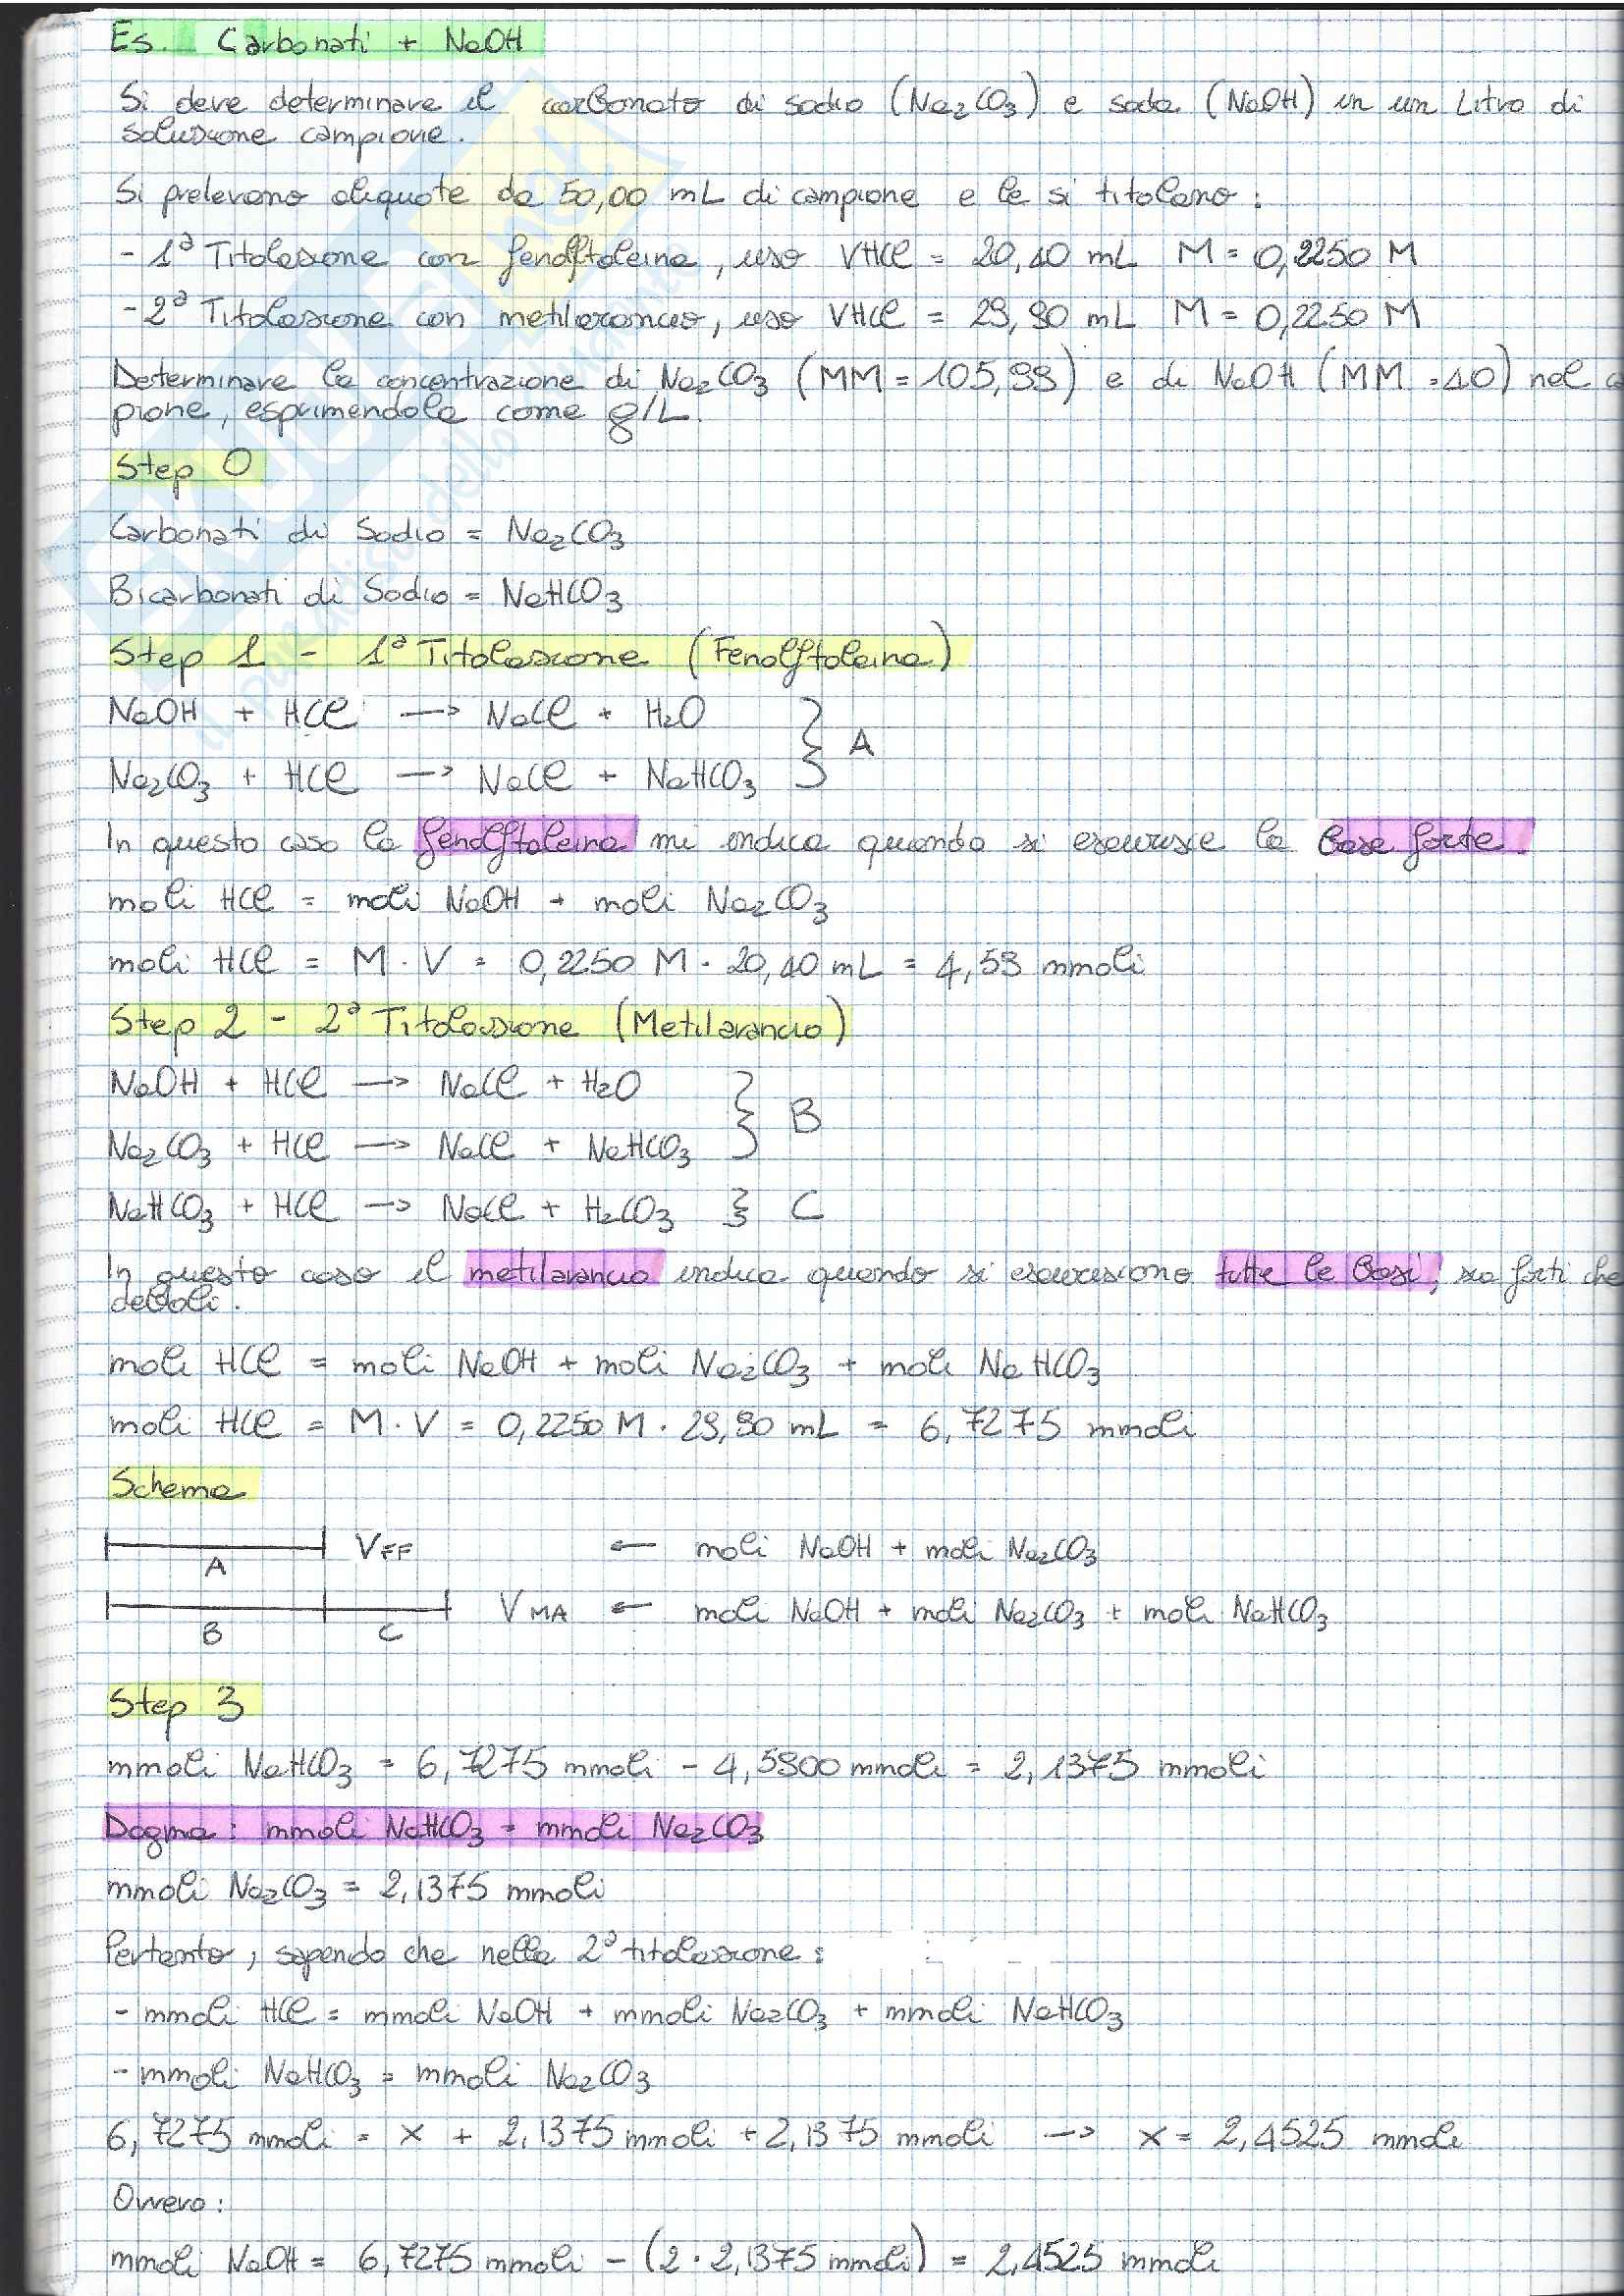 Es. Carbonati + NaOH
Si deve determinare il carbonato di sodio (Na2CO3) e soda (NaOH) in un Litro di
soluzione campione.
Si prelevano aliquote da 50,00 mL di campione e le si titolano:
- 1ª Titolazione con fenolftaleina, uso VHCl = 20,40 mL M = 0,2250 M
- 2ª Titolazione con metilarancio, uso VHCl = 29,90 mL M = 0,2250 M
Determinare la concentrazione di Na2CO3 (MM = 105,99) e di NaOH (MM = 40) nel
pione, esprimendola come g/L.
Step 0
Carbonati di Sodio = Na2CO3
Bicarbonati di Sodio = NaHCO3
Step 1 - 1ª Titolazione (Fenolftaleina)
NaOH + HCl → NaCl + H2O
A
Na2CO3 + HCl → NaCl + NaHCO3
In questo caso la fenolftaleina mi indica quando si esaurisce la base forte.
moli HCl = moli NaOH + moli Na2CO3
moli HCl = M · V = 0,2250 M · 20,40 mL = 4,59 mmoli
Step 2 - 2ª Titolazione (Metilarancio)
NaOH + HCl → NaCl + H2O
B
Na2CO3 + HCl → NaCl + NaHCO3
NaHCO3 + HCl → NaCl + H2CO3 } C
In questo caso il metilarancio indica quando si esauriscono tutte le basi, sia forti che
deboli.
moli HCl = moli NaOH + moli Na2CO3 + moli NaHCO3
moli HCl = M · V = 0,2250 M · 29,90 mL = 6,7275 mmoli
Schema
A VFF ← moli NaOH + moli Na2CO3
B C VMA ← moli NaOH + moli Na2CO3 + moli NaHCO3
Step 3
mmoli NaHCO3 = 6,7275 mmoli - 4,5900 mmoli = 2,1375 mmoli
Dogma: mmoli NaHCO3 = mmoli Na2CO3
mmoli Na2CO3 = 2,1375 mmoli
Pertanto, sapendo che nella 2ª titolazione:
- mmoli HCl = mmoli NaOH + mmoli Na2CO3 + mmoli NaHCO3
- mmoli NaHCO3 = mmoli Na2CO3
6,7275 mmoli = x + 2,1375 mmoli + 2,1375 mmoli → x = 2,4525 mmoli
Ovvero:
mmoli NaOH = 6,7275 mmoli - (2 · 2,1375 mmoli) = 2,4525 mmoli